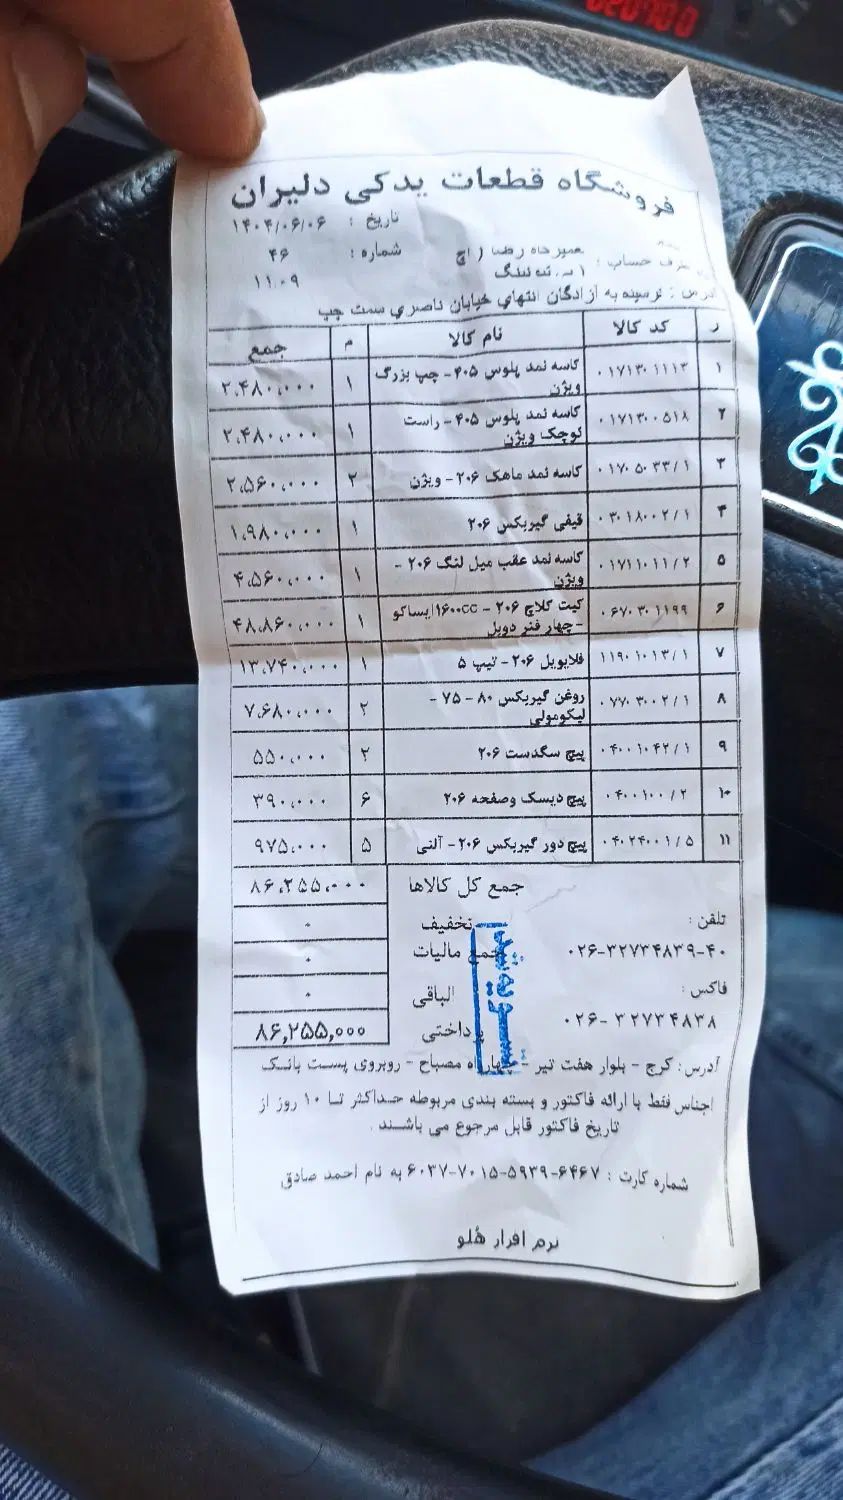 فروشگاه قطعات یدکی دلیران
تاریخ : ۱۴۰۴/۰۶/۰۶
شماره : ۴۶
طرف حساب : تعمیرگاه رضا
۱۱:۰۹
آدرس : نرسیده به آزادگان انتهای خیابان ناصری سمت چپ
ر کد کالا نام کالا م جمع
۱ ۰۱۷۱۳۰۱۱۱۳ کاسه نمد پلوس ۴۰۵ - چپ بزرگ ویژن ۱ ۲،۴۸۰،۰۰۰
۲ ۰۱۷۱۳۰۰۵۱۸ کاسه نمد پلوس ۴۰۵ - راست کوچک ویژن ۱ ۲،۴۸۰،۰۰۰
۳ ۰۱۷۰۵۰۳۳/۱ کاسه نمد ماهک ۲۰۶ - ویژن ۲ ۲،۵۶۰،۰۰۰
۴ ۰۳۰۱۸۰۰۲/۱ قیفی گیربکس ۲۰۶ ۱ ۱،۹۸۰،۰۰۰
۵ ۰۱۷۱۱۰۱۱/۲ کاسه نمد عقب میل لنگ ۲۰۶ - ویژن ۱ ۴،۵۶۰،۰۰۰
۶ ۰۶۷۰۳۰۱۱۹۹ کیت کلاچ ۲۰۶ - ۱۶۰۰cc ایساکو - چهار فنر دوبل ۱ ۴۸،۸۶۰،۰۰۰
۷ ۱۱۹۰۱۰۱۳/۱ فلایویل ۲۰۶ - تیپ ۵ ۱ ۱۳،۷۴۰،۰۰۰
۸ ۰۷۷۰۳۰۰۲/۱ روغن گیربکس ۸۰ - ۷۵ - لیکومولی ۲ ۷،۶۸۰،۰۰۰
۹ ۰۴۰۰۱۰۴۲/۱ پیچ سگدست ۲۰۶ ۲ ۵۵۰،۰۰۰
۱۰ ۰۴۰۰۱۰۰/۲ پیچ دیسک وصفحه ۲۰۶ ۶ ۳۹۰،۰۰۰
۱۱ ۰۴۰۲۴۰۰۱/۵ پیچ دور گیربکس ۲۰۶ - آلنی ۵ ۹۷۵،۰۰۰
جمع کل کالاها ۸۶،۲۵۵،۰۰۰
تخفیف ۰
جمع مالیات ۰
الباقی ۰
پرداختی ۸۶,۲۵۵,۰۰۰
تلفن :
۰۲۶-۳۲۷۳۴۸۳۹-۴۰
فاکس :
۰۲۶-۳۲۷۳۴۸۳۸
آدرس: کرج - بلوار هفت تیر - چهارراه مصباح - روبروی پست بانک
اجناس فقط با ارائه فاکتور و بسته بندی مربوطه حداکثر تا ۱۰ روز از
تاریخ فاکتور قابل مرجوع می باشند .
شماره کارت : ۶۰۳۷-۷۰۱۵-۵۹۳۹-۶۴۶۷ به نام احمد صادق
نرم افزار هُلو